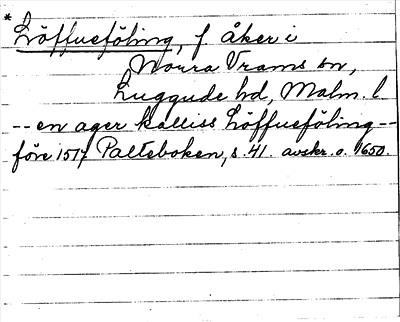 * Löffueföling, f åker i
Norra Vrams sn,
Luggude hd, Malm. l.
-- en ager kalliss Löffueföling --
före 1517 Palteboken, s. 41. avskr. o. 1650.